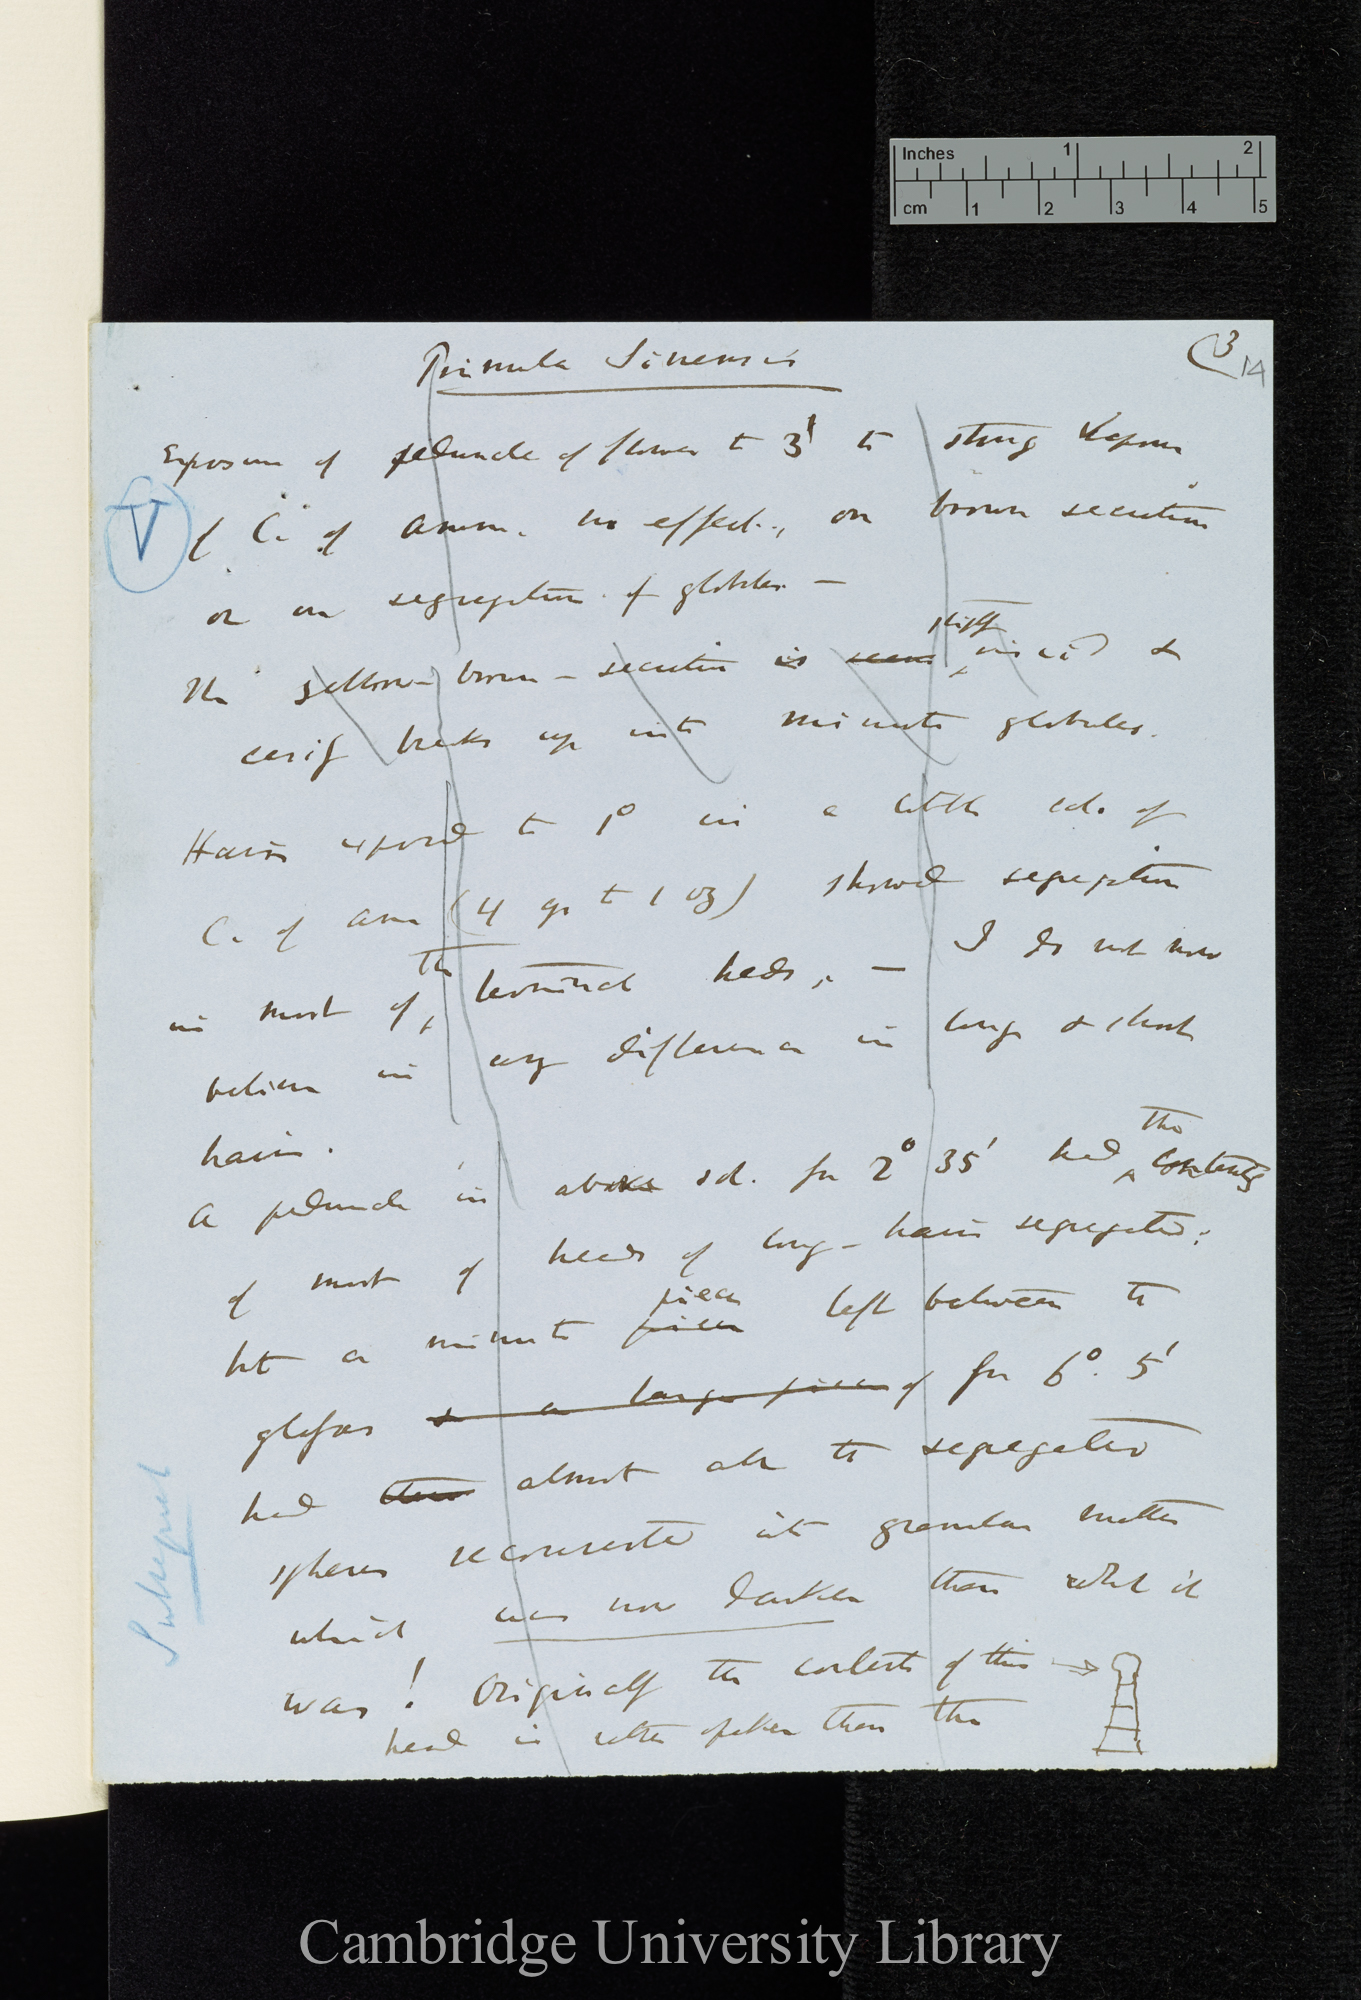 Inches 1 2
cm 1 2 3 4 5
Primula Sinensis
(3
14
Exposure of peduncle of flower to 3' to strong vapour
V
of C. of Amm. no effect, on brown secretion
or on segregation of globules —
The yellow-brown-secretion is seems stiff viscid &
easily breaks up into minute globules.
Hairs exposed to 1° in a little sol. of
C. of Am (4 gr to 1 oz) showed segregation
in most of the terminal heads, — I do not now
believe in any difference in long & short
hairs.
A peduncle in above sol. for 2° 35' had the contents
of most of heads of long-hairs segregated:
but a minute piece piece left between the
glasses & a large piece of for 6°. 5'
had almost all the segregated
spheres reconverted into granular matter
which was now darker than what it
was! Originally the contents of this
head is rather paler than the
Cambridge University Library